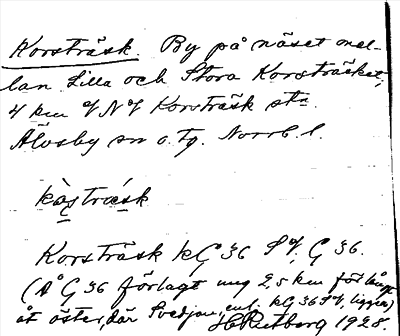 Korsträsk. By på näset mel-
lan Lilla och Stora Korsträsket,
4 km VNV Korsträsk stn.
Älvsby sn o. tg. Norrb. l.
Korsträsk kG 36 SV. G 36.
(Å G 36 förlagt ung 2,5 km för långt
åt öster, där Svedjan, enl. kG 36 SV, ligger)
1928.